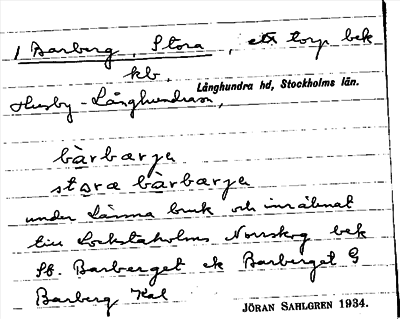 1 Barberg, Stora, ett torp bek
kb.
Husby-Långhundra sn, Långhundra hd, Stockholms län.
bàrbærja
stora bàrbærja
under Lärma bruk och inräknat
Lockstaholms Norrskog bek
Sf. Barberget ek Barberget G
Barberg Kal
JÖRAN SAHLGREN 1934.